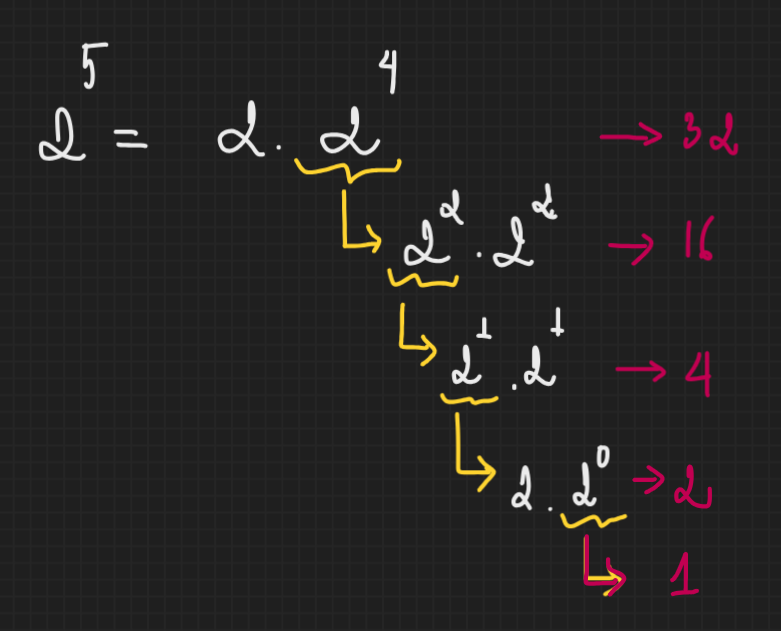 2⁵ = 2 · 2⁴ → 32
2² · 2² → 16
2¹ · 2¹ → 4
2 · 2⁰ → 2
1